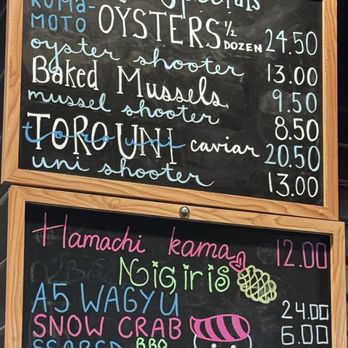 Specials
KUMA-
MOTO OYSTERS 1/2 DOZEN 24.50
oyster shooter 13.00
Baked Mussels 9.50
mussel shooter 8.50
TORO UNI caviar 20.50
uni shooter 13.00
Hamachi kama 12.00
Nigiris
A5 WAGYU 24.00
SNOW CRAB 6.00
SEARED BBQ